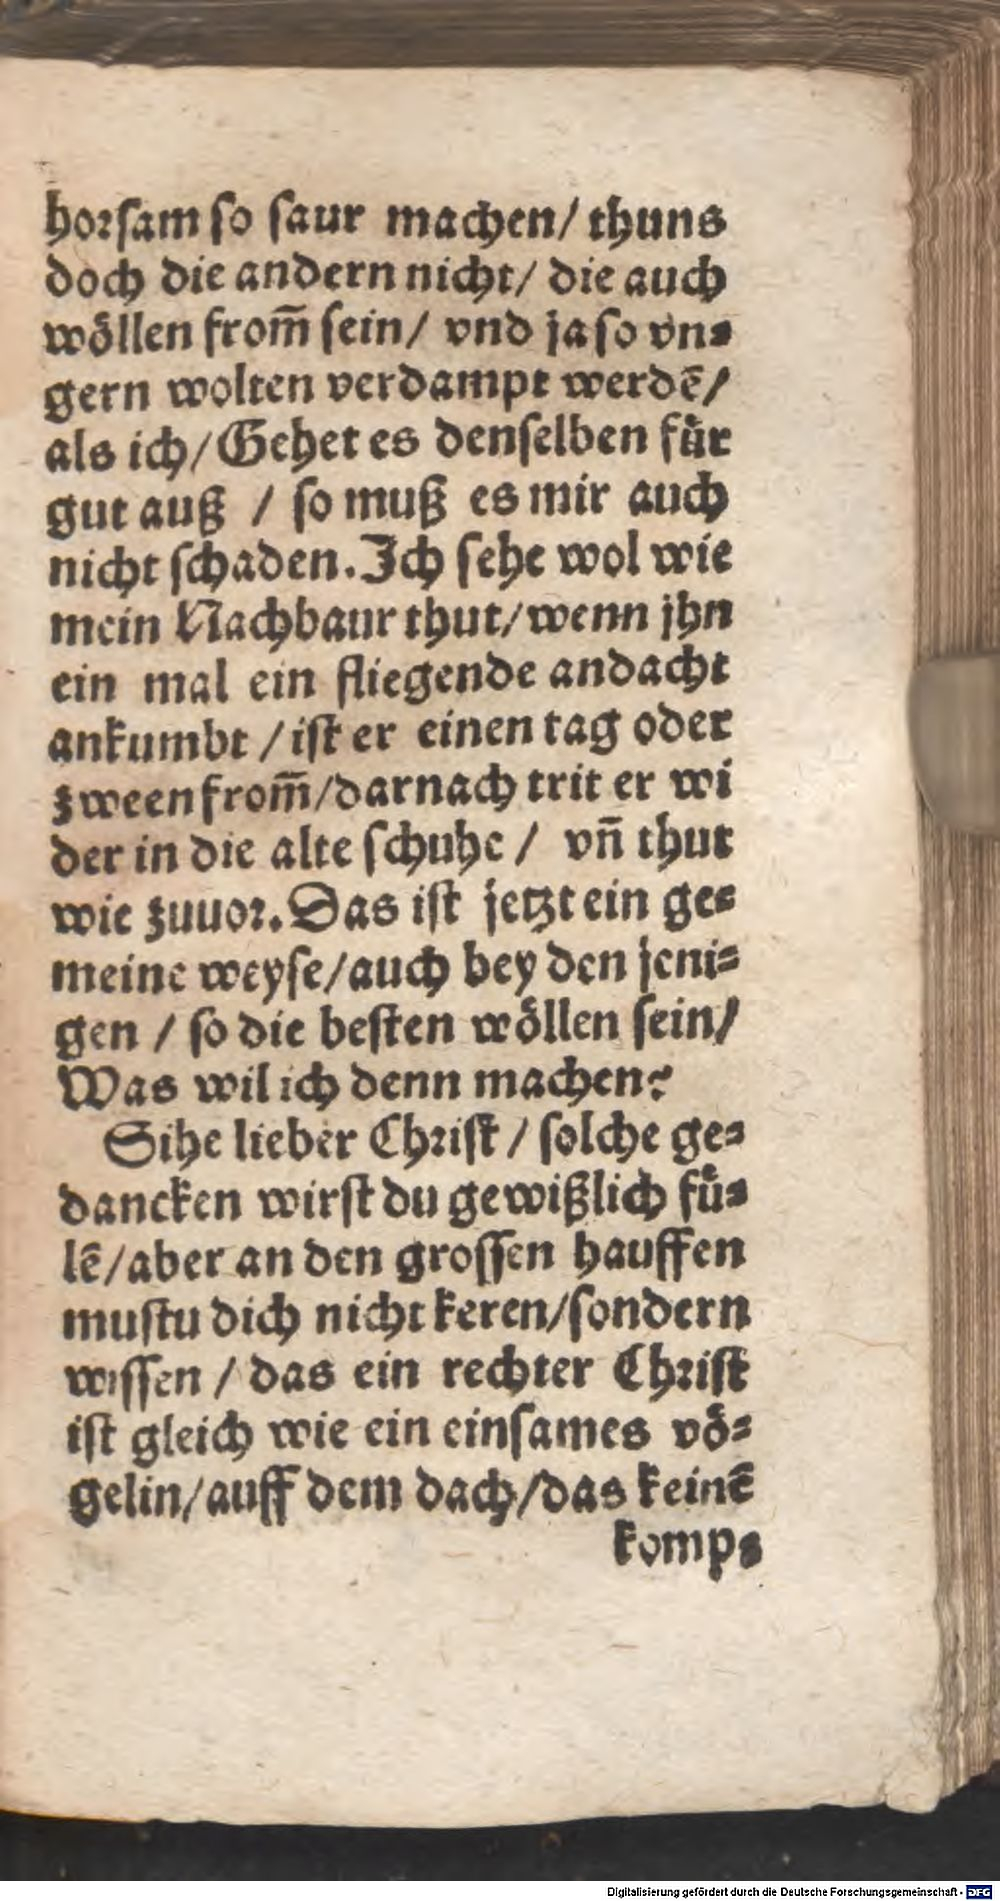 horſam ſo ſaur machen/ thuns
doch die andern nicht/ die auch
woͤllen from̃ ſein/ vnd ja ſo vn⸗
gern wolten verdampt werdẽ/
als ich/ Gehet es denſelben fuͤr
gut auß / ſo muß es mir auch
nicht ſchaden. Ich ſehe wol wie
mein Nachbaur thut/ wenn jhn
ein mal ein fliegende andacht
ankumbt / iſt er einen tag oder
zween from̃/ darnach trit er wi
der in die alte ſchuhe / vñ thut
wie zuuor. Das iſt jetzt ein ge⸗
meine weyſe/ auch bey den jeni⸗
gen / ſo die beſten woͤllen ſein/
Was wil ich denn machen?
Sihe lieber Chriſt / ſolche ge⸗
dancken wirſt du gewißlich fuͤ⸗
lẽ/ aber an den groſſen hauffen
muſtu dich nicht keren/ ſondern
wiſſen / das ein rechter Chriſt
iſt gleich wie ein einſames voͤ⸗
gelin/ auff dem dach/ das keinẽ
komp⸗
Digitalisierung gefördert durch die Deutsche Forschungsgemeinschaft - DFG